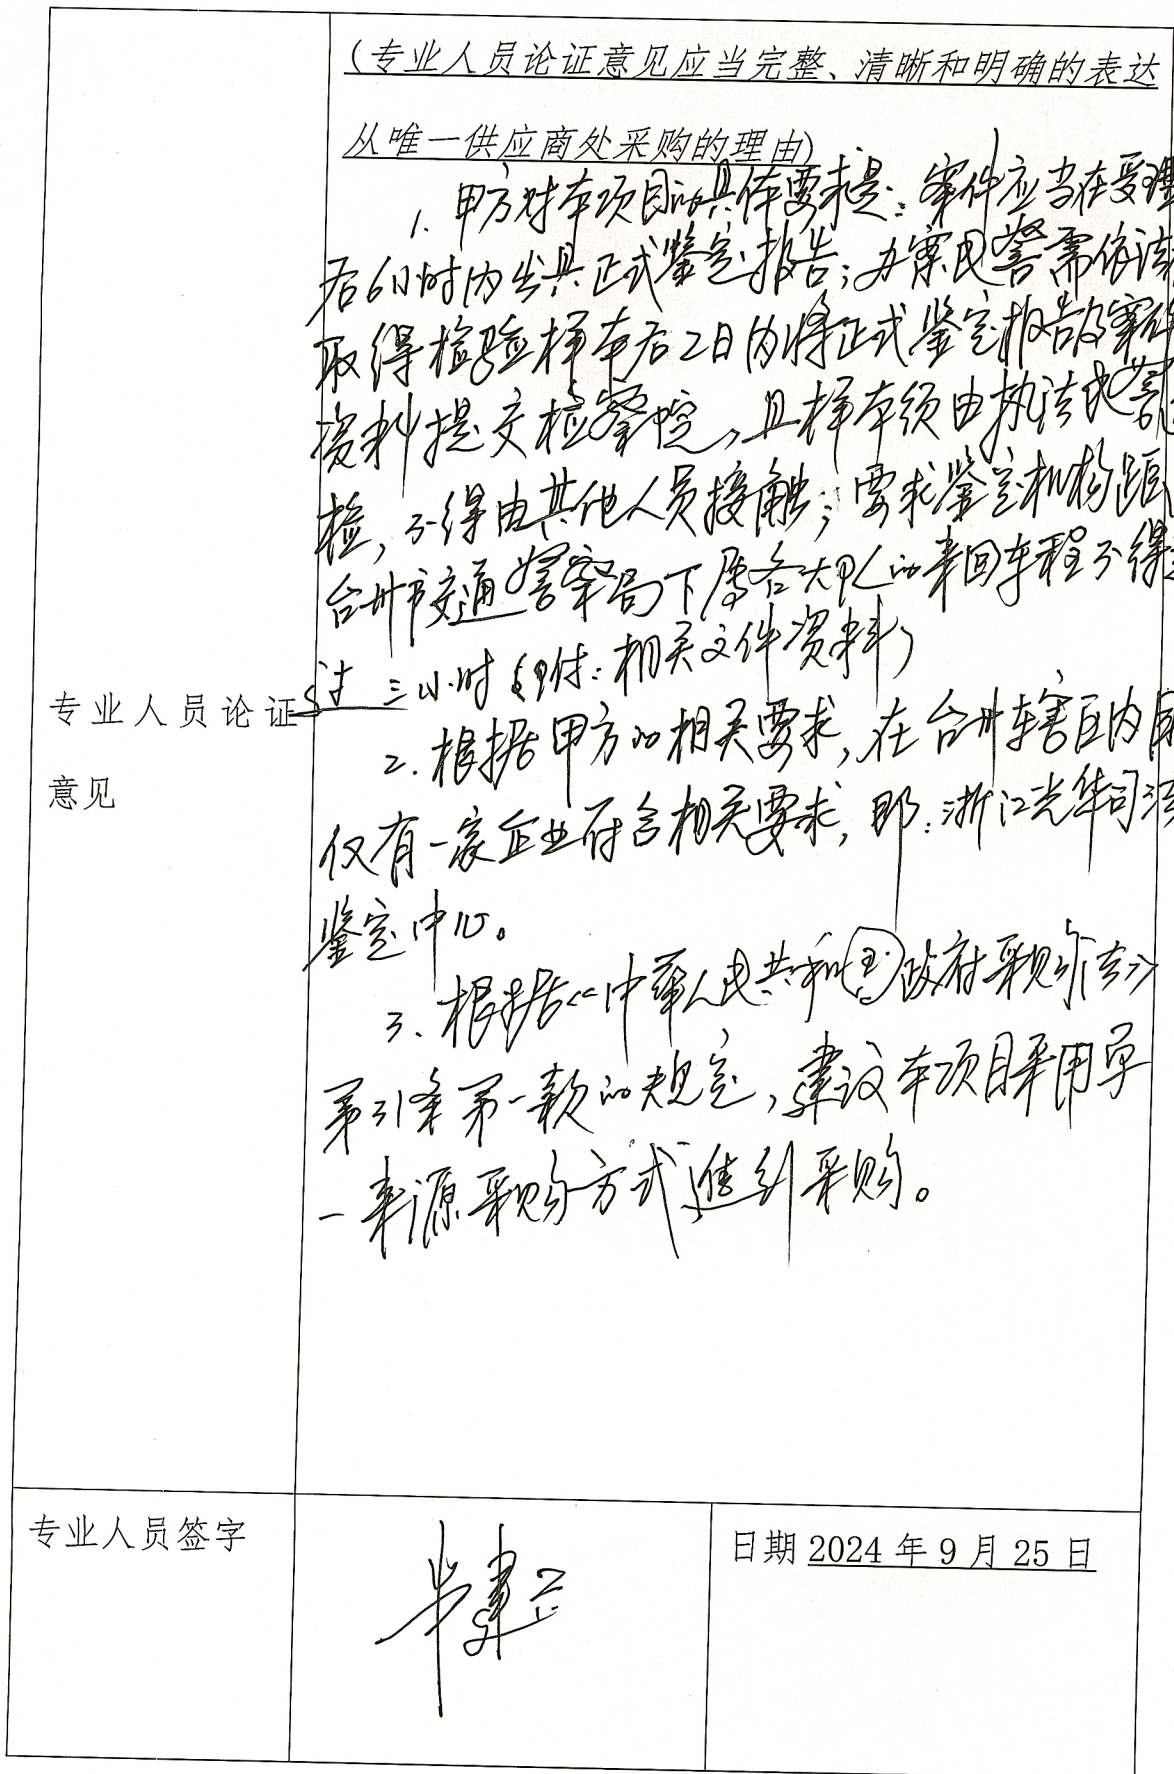 (专业人员论证意见应当完整、清晰和明确的表达
从唯一供应商处采购的理由)
1. 甲方对本项目的具体要求是：案件应当在受理
后6小时内出具正式鉴定报告；办案民警需依法
取得检验样本后2日内将正式鉴定报告及案件
资料提交检察院，且样本须由执法民警送
检，不得由其他人员接触；要求鉴定机构距
台州市交通警察局下属各大队的来回车程不得超
过三小时（附：相关文件资料）
专业人员论证
意见
2. 根据甲方的相关要求，在台州辖区内目
仅有一家企业符合相关要求，即：浙江光华司法
鉴定中心。
3. 根据《中华人民共和国政府采购法》
第31条第一款的规定，建议本项目采用单
一来源采购方式进行采购。
专业人员签字
日期 2024 年 9 月 25 日